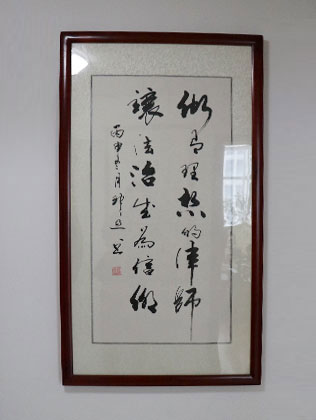 做有理想的律師
讓法治成為信仰
丙申冬月